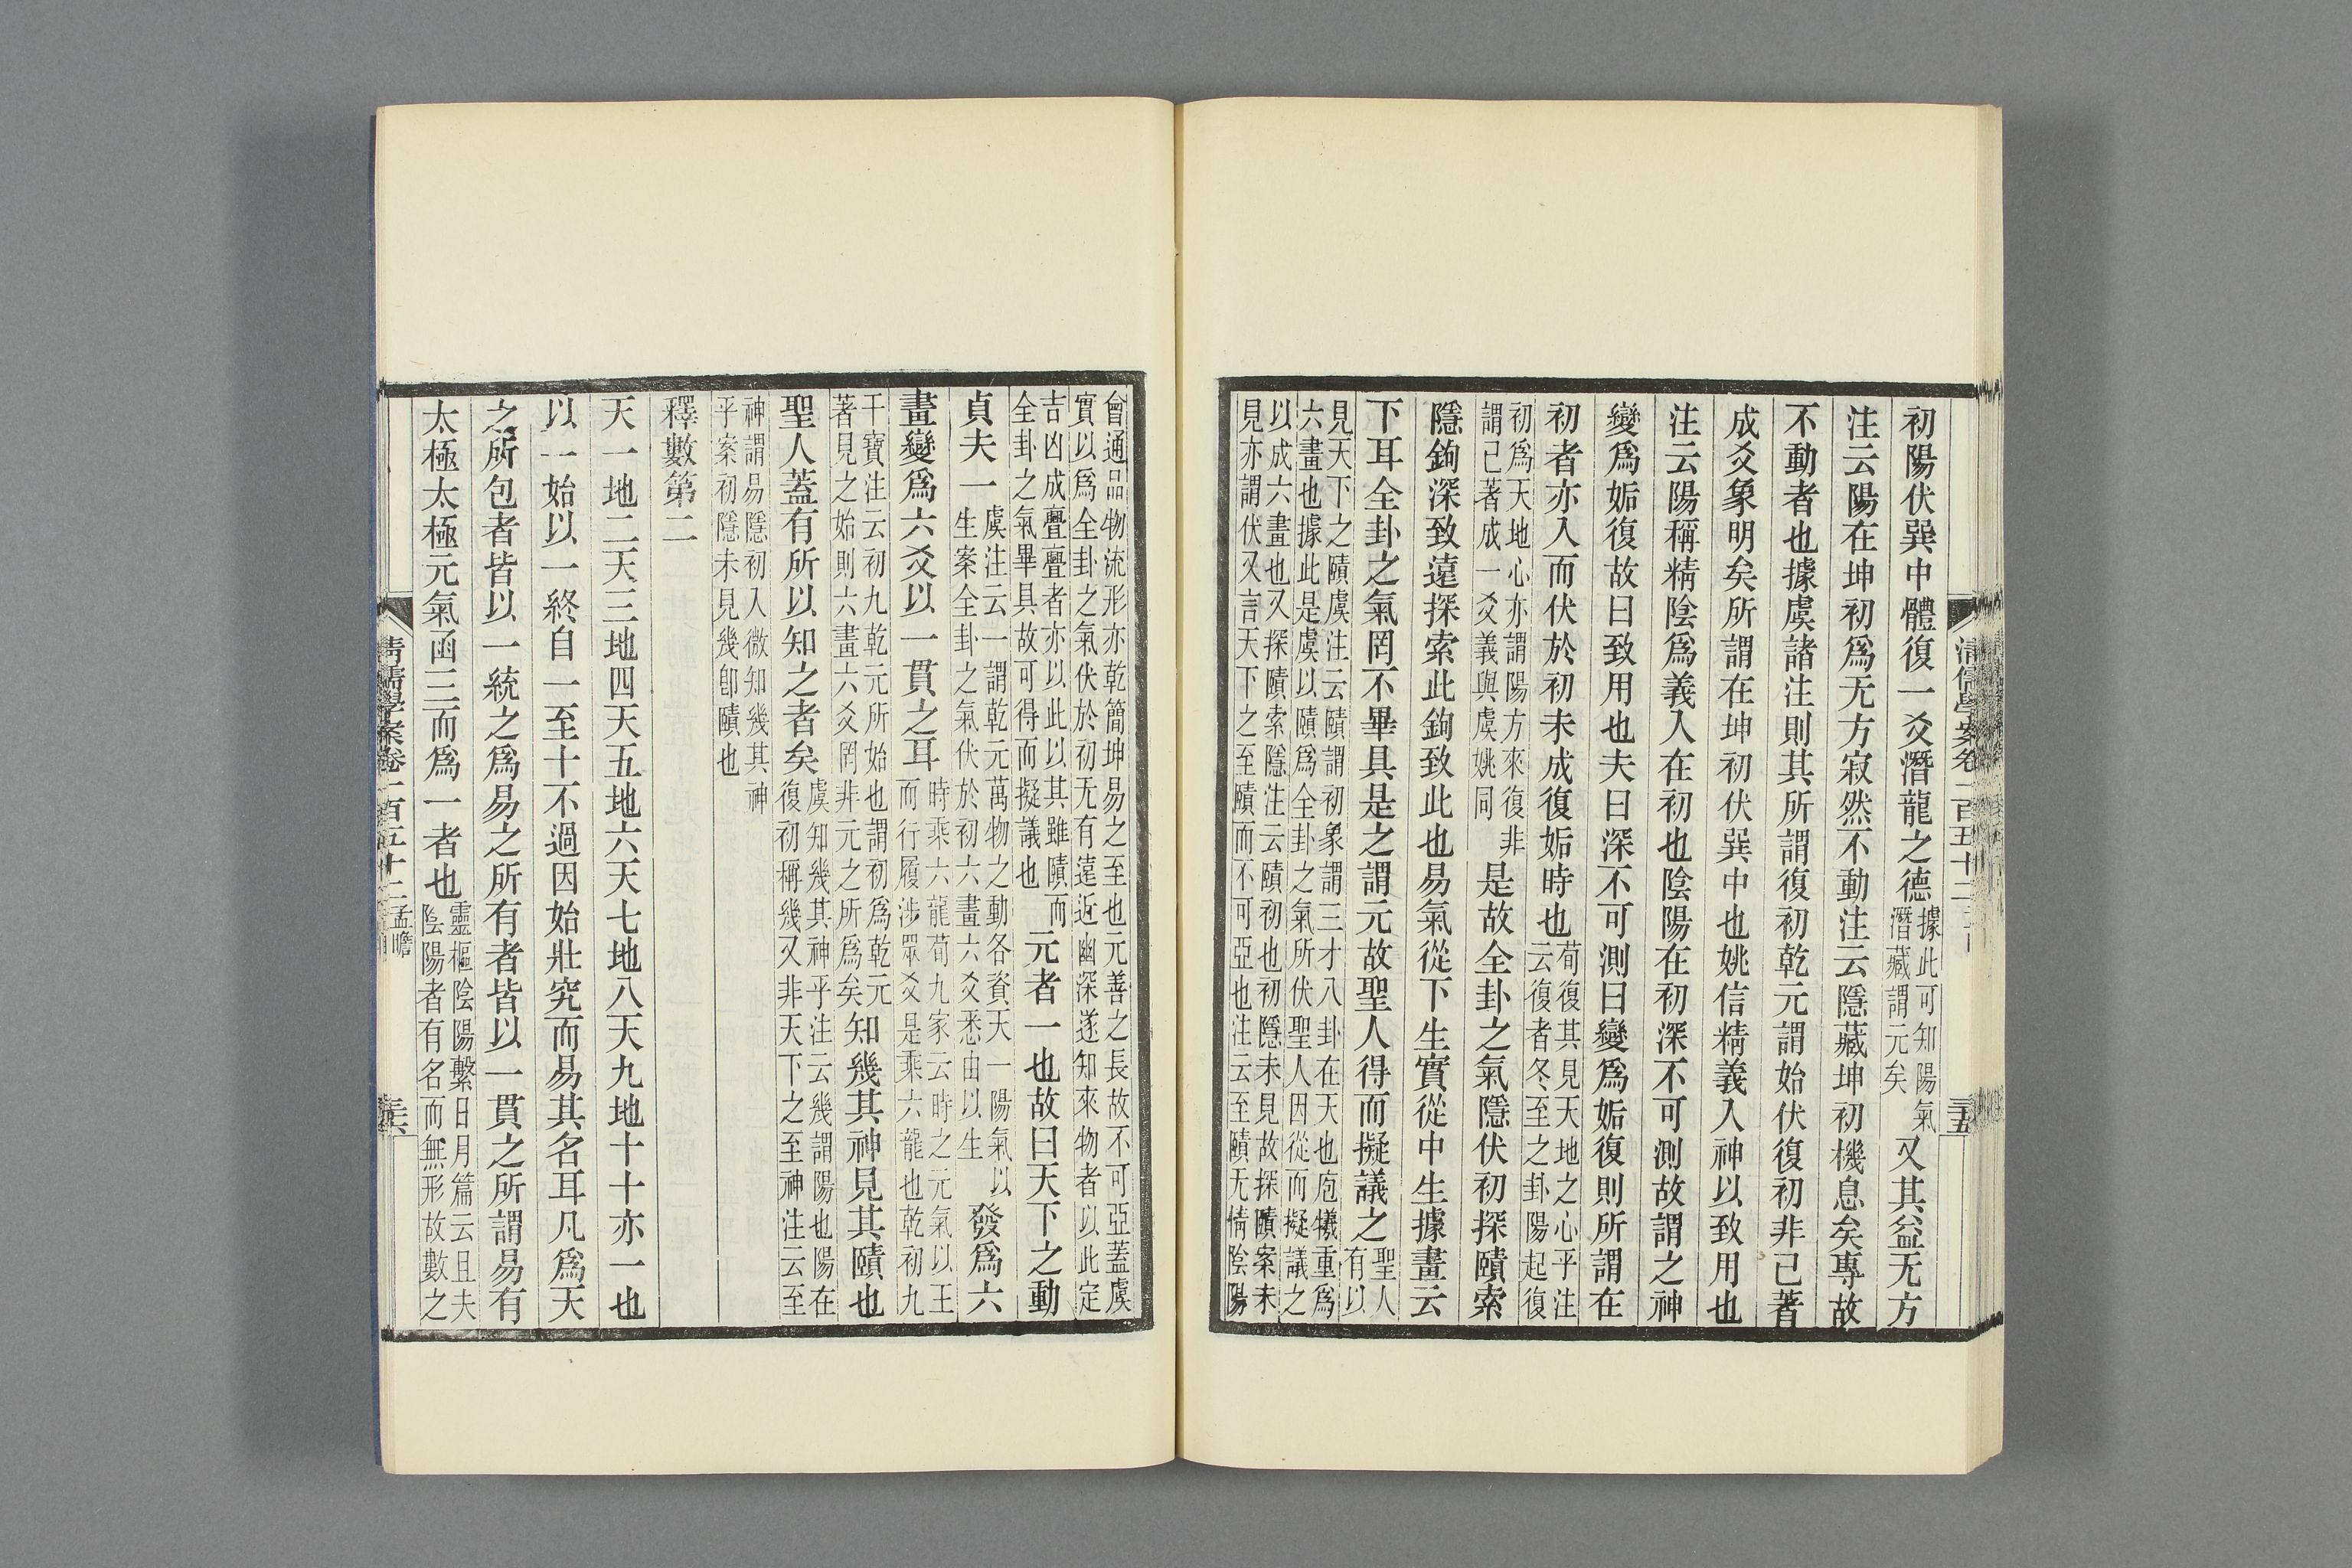 初陽伏巽中體復一爻潛龍之德據此可知陽氣潛藏謂元矣又其益无方
注云陽在坤初爲无方寂然不動注云隱藏坤初機息矣專故
不動者也據虞諸注則其所謂復初乾元謂始伏復初非已著
成爻象明矣所謂在坤初伏巽中也姚信精義入神以致用也
注云陽稱精陰爲義入在初也陰陽在初深不可測故謂之神
變爲姤復故曰致用也夫曰深不可測曰變爲姤復則所謂在
初者亦入而伏於初未成復姤時也荀復其見天地之心乎注云復者冬至之卦陽起復
初爲天地心亦謂陽方來復非謂已著成一爻義與虞姚同是故全卦之氣隱伏初探賾索
隱鉤深致遠探索此鉤致此也易氣從下生實從中生據畫云
下耳全卦之氣罔不畢具是之謂元故聖人得而擬議之聖人有以
見天下之賾虞注云賾謂初象謂三才八卦在天也庖犧重爲
六畫也據此是虞以賾爲全卦之氣所伏聖人因從而擬議之
以成六畫也又探賾索隱注云賾初也初隱未見故探賾案未
見亦謂伏又言天下之至賾而不可亞也注云至賾无情陰陽
清儒學案卷一百五十二
三五
會通品物流形亦乾簡坤易之至也元善之長故不可亞蓋虞
實以爲全卦之氣伏於初无有遠近幽深遂知來物者以此定
吉凶成亹亹者亦以此以其雖賾而
全卦之氣畢具故可得而擬議也元者一也故曰天下之動
貞夫一虞注云一謂乾元萬物之動各資天一陽氣以生案全卦之氣伏於初六畫六爻悉由以生發爲六
畫變爲六爻以一貫之耳時乘六龍荀九家云時之元氣以王而行履涉眾爻是乘六龍也乾初九
干寶注云初九乾元所始也謂初爲乾元著見之始則六畫六爻罔非元之所爲矣知幾其神見其賾也
聖人蓋有所以知之者矣虞知幾其神乎注云幾謂陽也陽在復初稱幾又非天下之至神注云至
神謂易隱初入微知幾其神
乎案初隱未見幾卽賾也
釋數第二
天一地二天三地四天五地六天七地八天九地十十亦一也
以一始以一終自一至十不過因始壯究而易其名耳凡爲天
之所包者皆以一統之爲易之所有者皆以一貫之所謂易有
太極太極元氣函三而爲一者也靈樞陰陽繫日月篇云且夫陰陽者有名而無形故數之
清儒學案卷一百五十二孟瞻
三六